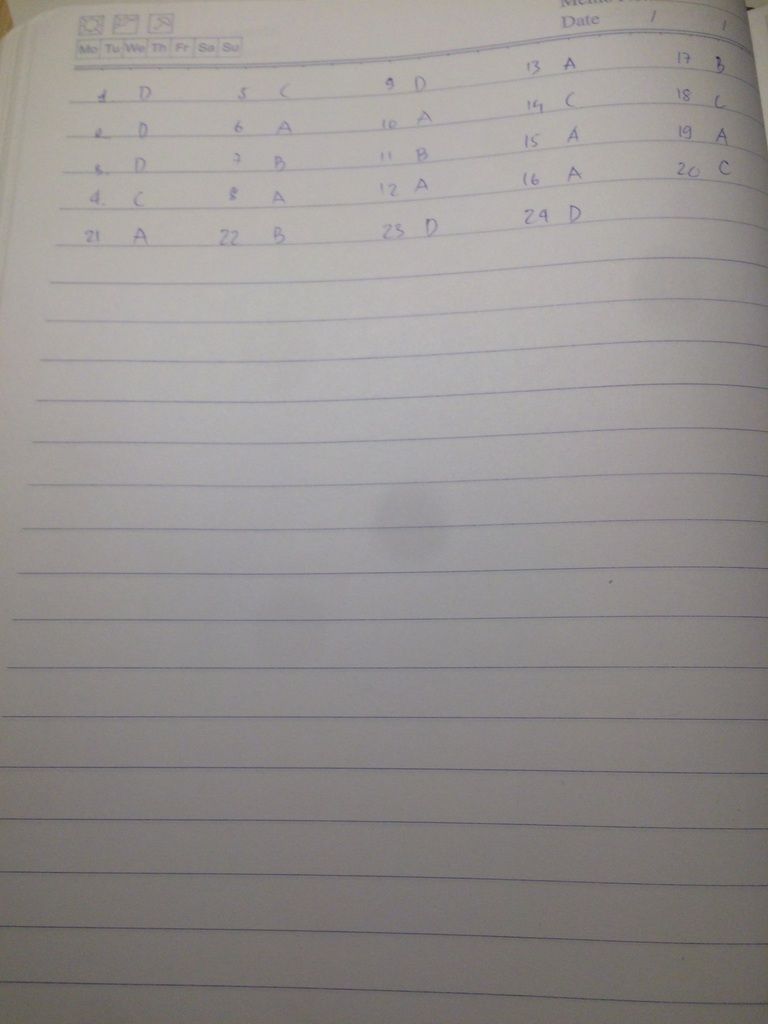 Date / /
Mo Tu We Th Fr Sa Su
1 D 5 C 9 D 13 A 17 B
2 D 6 A 10 A 14 C 18 C
3. D 7 B 11 B 15 A 19 A
4. C 8 A 12 A 16 A 20 C
21 A 22 B 23 D 24 D